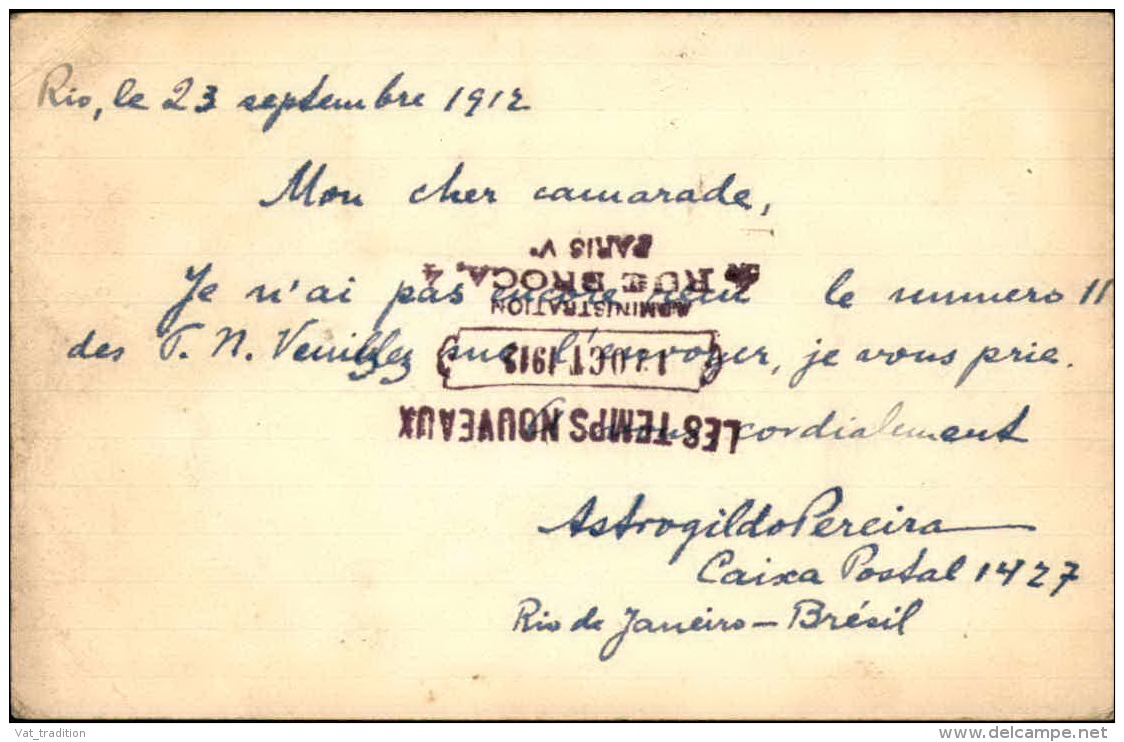 Rio, le 23 septembre 1912
Mon cher camarade,
Je n'ai pas encore reçu le numero 11
des T. N. Veuillez me l'envoyer, je vous prie.
cordialement
Astrogildo Pereira
Caixa Postal 1427
Rio de Janeiro - Brésil
LES TEMPS NOUVEAUX
OCT 1912
ADMINISTRATION
4, RUE BROCA, 4
PARIS Ve
Vat_tradition
delcampe.net